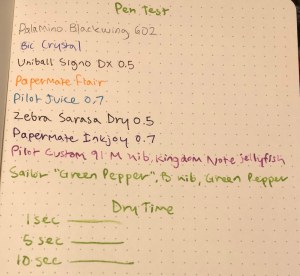 Pen Test
Palamino Blackwing 602
Bic Crystal
Uniball Signo DX 0.5
Papermate Flair
Pilot Juice 0.7
Zebra Sarasa Dry 0.5
Papermate Inkjoy 0.7
Pilot Custom 91 M nib, Kingdom Note Jellyfish
Sailor "Green Pepper", B nib, Green Pepper
Dry Time
1 sec
5 sec
10 sec